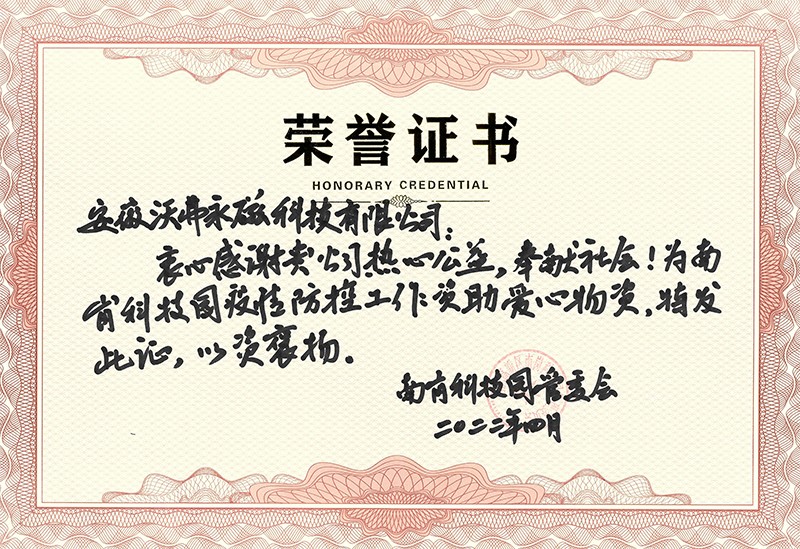 荣誉证书
HONORARY CREDENTIAL
安徽沃弗永磁科技有限公司:
衷心感谢贵公司热心公益,奉献社会!为南
肖科技园疫情防控工作资助爱心物资,特发
此证,以资褒扬。
南肖科技园管委会
二〇二二年四月